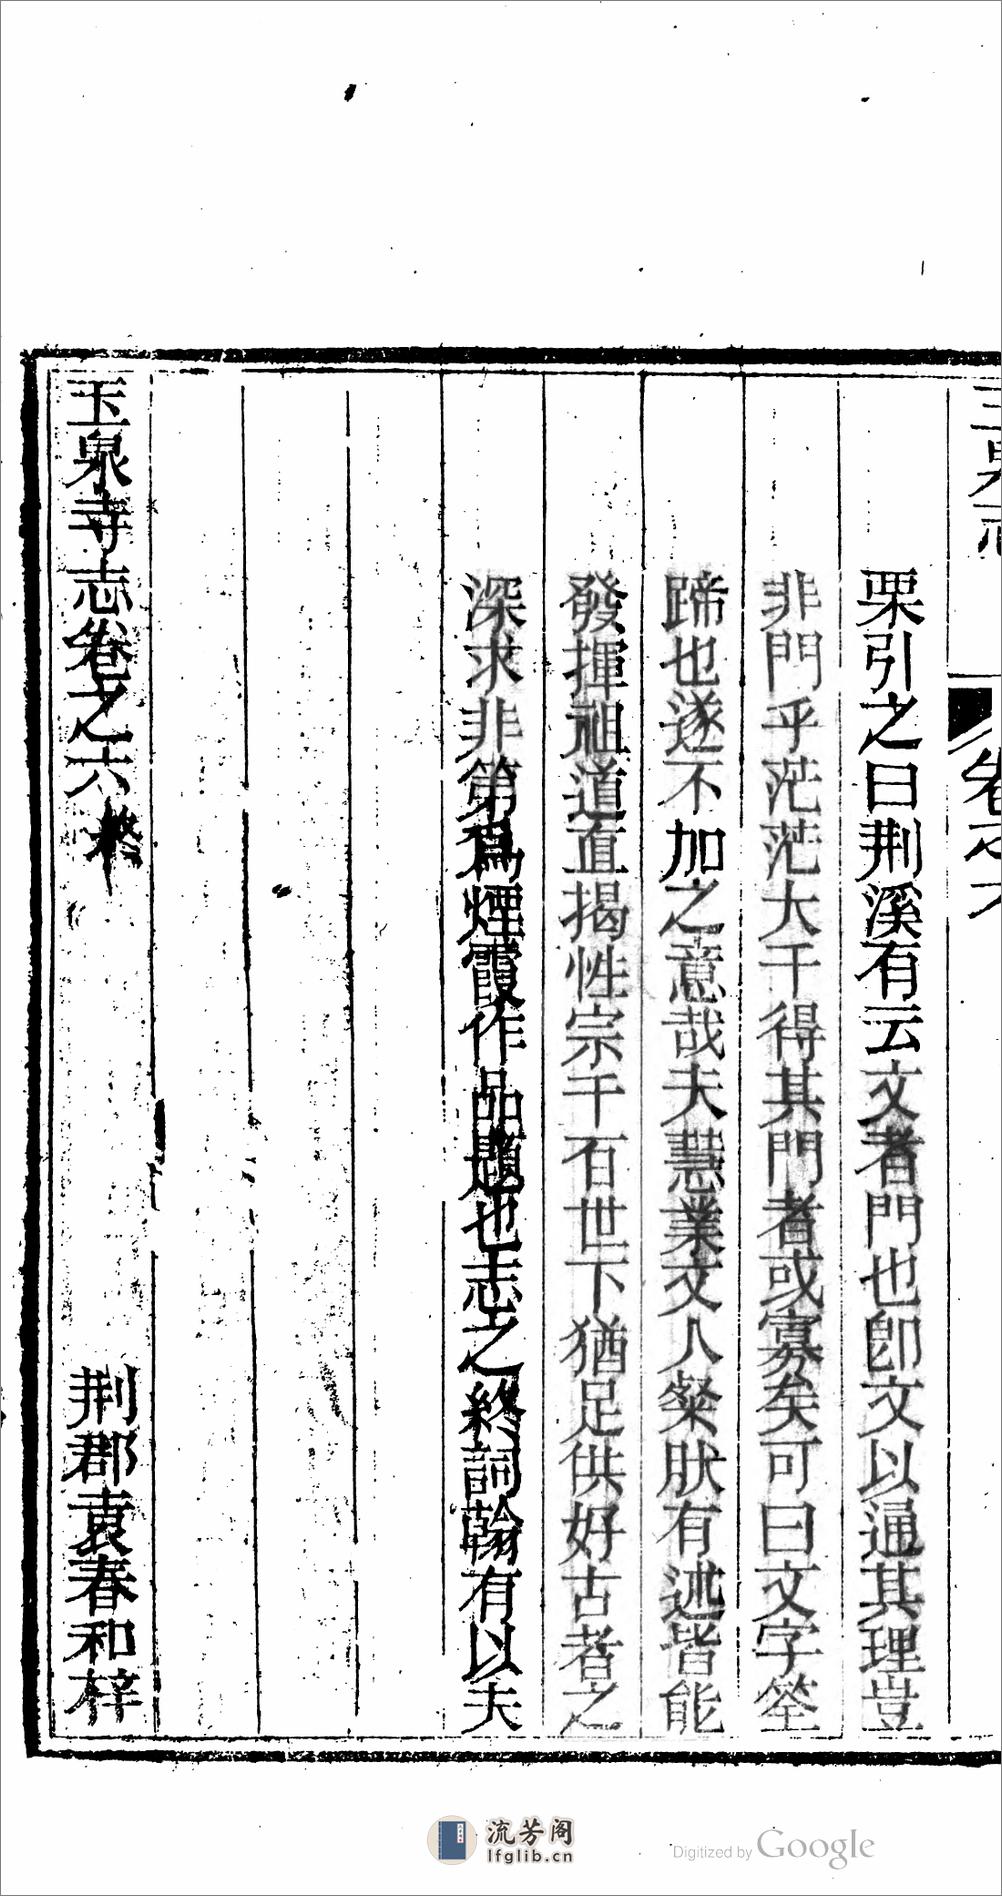 栗引之曰荆溪有云文者門也卽文以通其理豈
非門乎茫茫大千得其門者或寡矣可曰文字筌
蹄也遂不加之意哉夫慧業文人粲狀有述皆能
發揮祖道直揭性宗千百世下猶足供好古者之
深求非第爲煙霞作品題也志之終詞翰有以夫
玉泉寺志卷之六終 荆郡袁春和梓
流芳阁
lfglib.cn
Digitized by Google